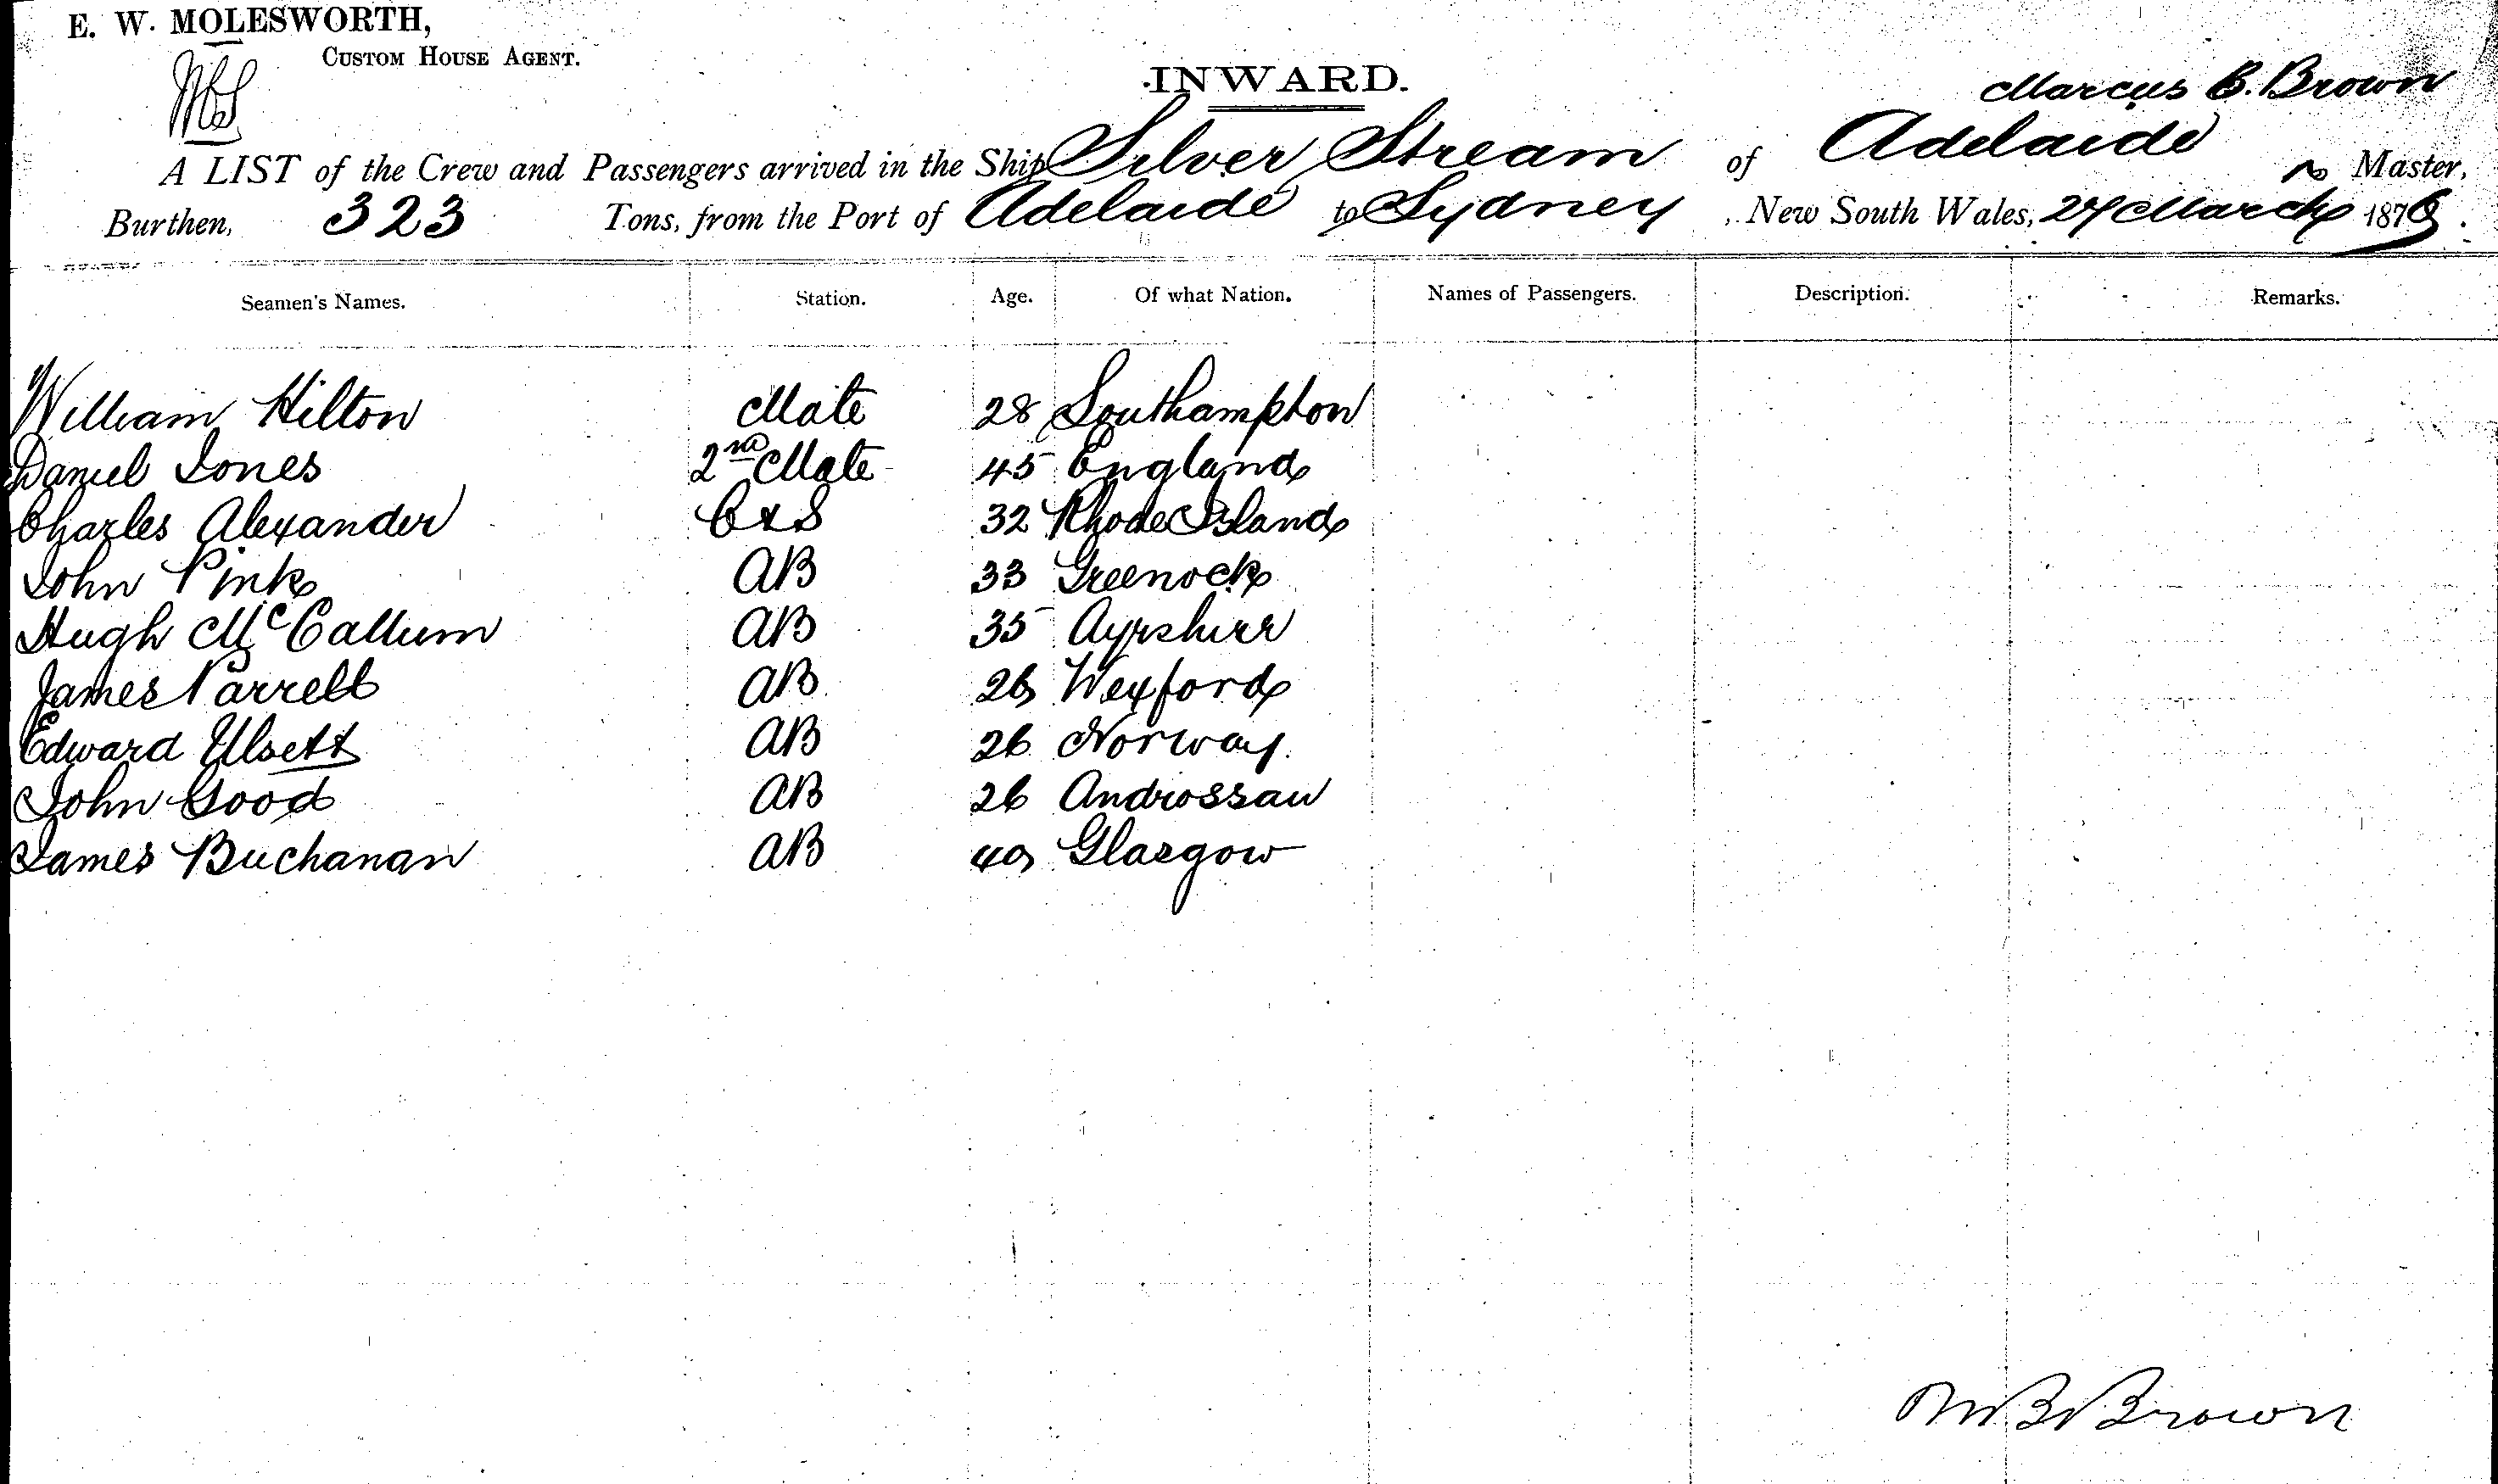 E. W. MOLESWORTH,
CUSTOM HOUSE AGENT.
INWARD.
Marcus B. Brown
A LIST of the Crew and Passengers arrived in the Ship Silver Stream of Adelaide Master,
Burthen, 323 Tons, from the Port of Adelaide to Sydney, New South Wales, 27 March 1878.
Seamen's Names. Station. Age. Of what Nation. Names of Passengers. Description. Remarks.
William Hilton Mate 28 Southampton
Daniel Jones 2nd Mate 45 England
Charles Alexander C & S 32 Rhode Island
John Pink AB 33 Greenock
Hugh McCallum AB 35 Ayrshire
James Parrell AB 26 Wexford
Edward Ulsett AB 26 Norway.
John Good AB 26 Androssan
James Buchanan AB 40 Glasgow
M B Brown